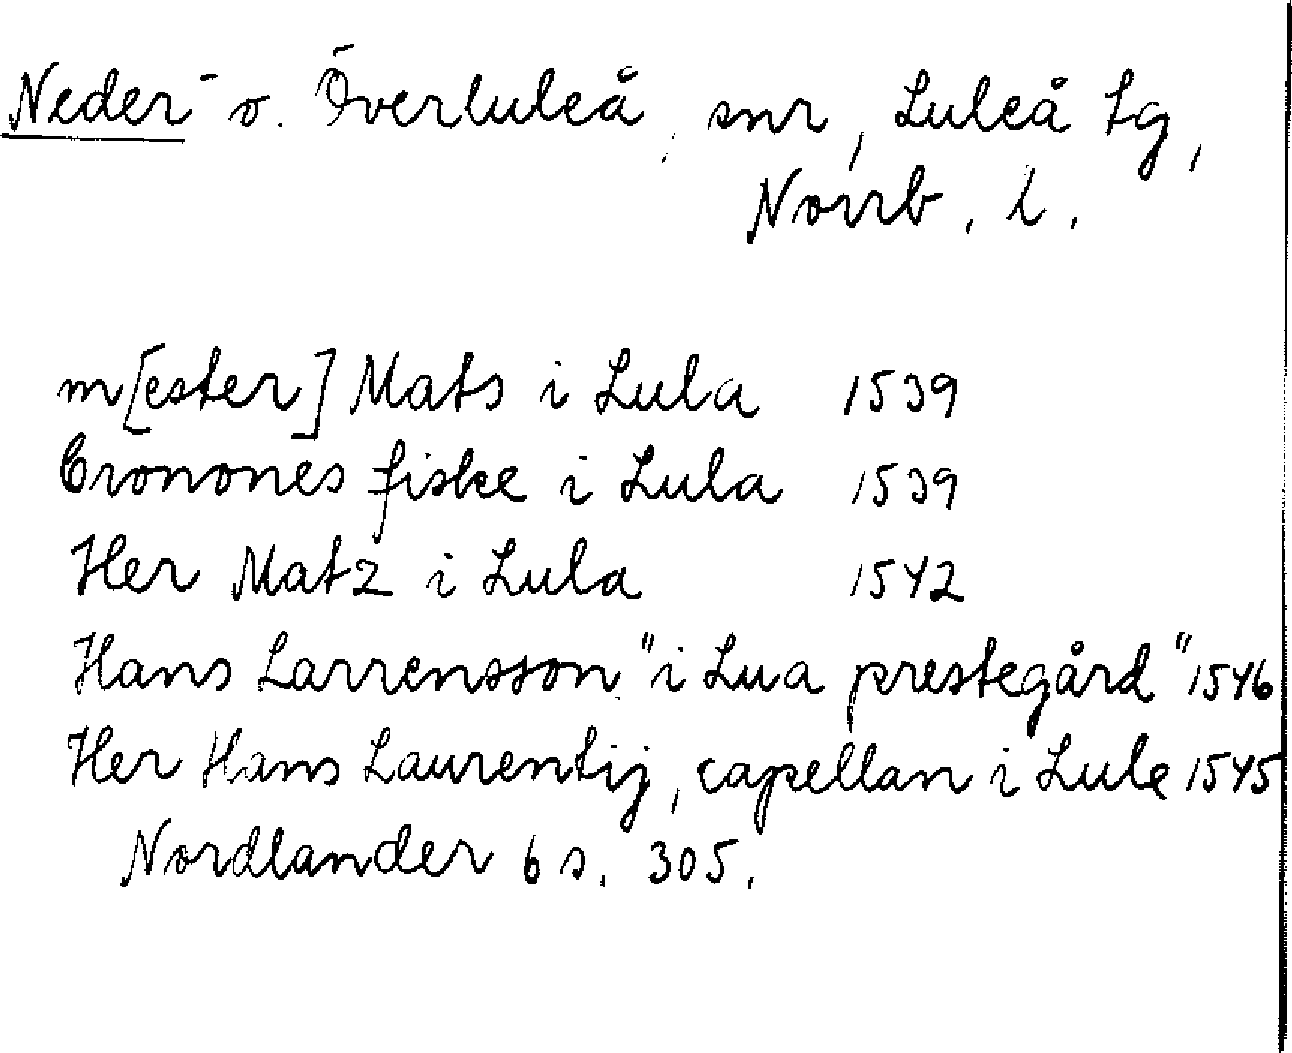 Neder- o. Överluleå, snr, Luleå tg,
Norrb. l.
m[ester] Mats i Lula 1539
Cronones fiske i Lula 1539
Her Matz i Lula 1542
Hans Larrensson "i Lua prestegård" 1546
Her Hans Laurentij, capellan i Lule 1545
Nordlander 6 s. 305.